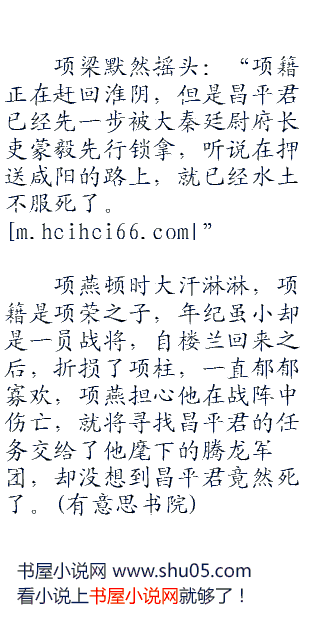 项梁默然摇头：“项籍
正在赶回淮阴，但是昌平君
已经先一步被大秦廷尉府长
吏蒙毅先行锁拿，听说在押
送咸阳的路上，就已经水土
不服死了。
[m.hcihci66.com|”
项燕顿时大汗淋淋，项
籍是项荣之子，年纪虽小却
是一员战将，自楼兰回来之
后，折损了项柱，一直郁郁
寡欢，项燕担心他在战阵中
伤亡，就将寻找昌平君的任
务交给了他麾下的腾龙军
团，却没想到昌平君竟然死
了。(有意思书院)
书屋小说网 www.shu05.com
看小说上书屋小说网就够了！